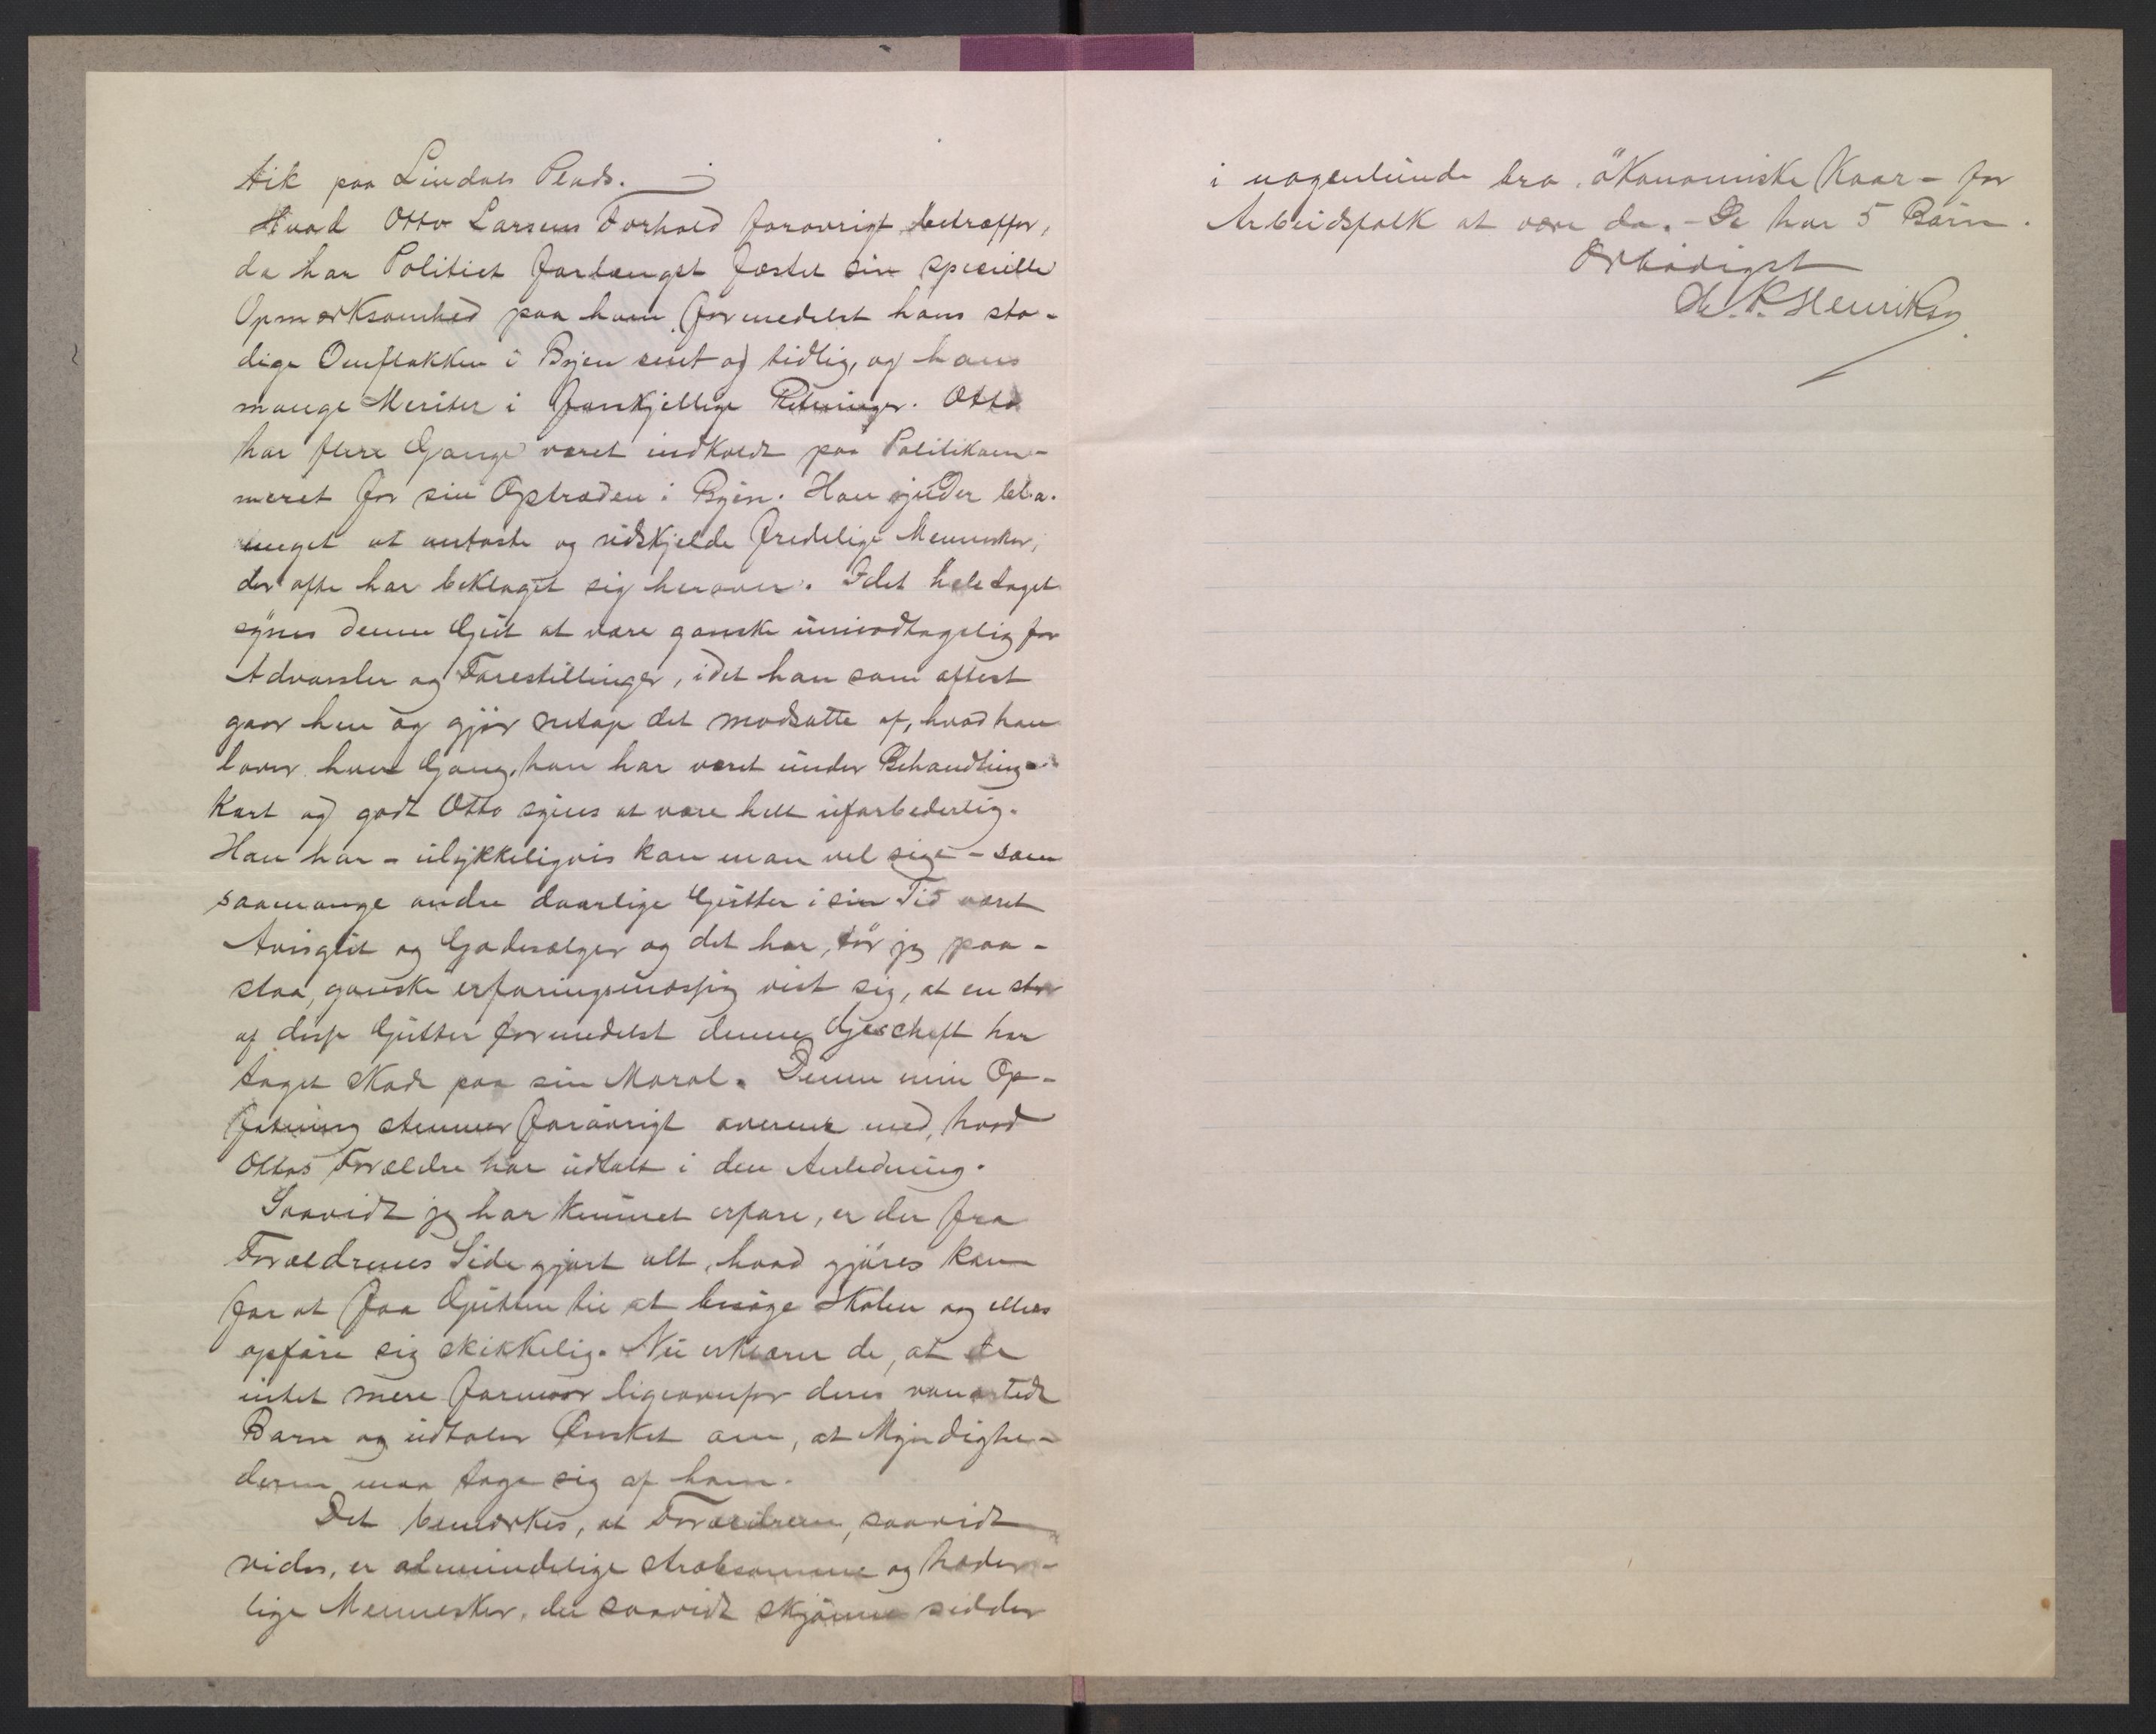 tik paa Lindals Plads.
Hvad Otto Larsens Forhold forøvrigt betræffer,
da har Politiet forlængst fæstet sin specielle
Opmærksomhed paa ham formedelst hans sta-
dige Omflakken i Byen sent og tidlig, og hans
mange Meriter i forskjellige Retninger. Otto
har flere Gange været indkaldt paa Politikam-
meret for sin Optræden i Byen. Han ynder
at antaste og udskjelde fredelige Mennesker,
der ofte har beklaget sig herover. Idet hele taget
synes denne Gut at være ganske uimodtagelig for
Advarsler og Forestillinger, idet han som oftest
gaar hen og gjør netop det modsatte af, hvad han
lover hver Gang, han har været under Behandling.
Kort og godt Otto synes at være helt uforbederlig.
Han har - ulykkeligvis kan man vel sige - som
saamange andre daarlige Gutter i sin Tid været
Avisgut og Gadesælger og det har, tør jeg paa-
staa, ganske erfaringsmæssig vist sig, at en stor
af disse Gutter formedelst denne Geschæft har
taget Skade paa sin Moral. Denne min Op-
fatning stemmer forøvrigt overens med, hvad
Ottos Forældre har udtalt i den Anledning.
Saavidt jeg har kunnet erfare, er der fra
Forældrenes Side gjort alt, hvad gjøres kan
for at faa Gutten til at besøge Skolen og ellers
opføre sig skikkelig. Nu erklærer de, at de
intet mere formaar ligeoverfor deres vanartede
Barn og udtaler Ønsket om, at Myndighe-
derne maa tage sig af ham.
Det bemærkes, at Forældrene, saavidt
vides, er almindelige stræbsomme og hæder-
lige Mennesker, der saavidt skjønnes sidder
i nogenlunde bra økonomiske Kaar - for
Arbeidsfolk at være da. - De har 5 Børn.
Ærbødigst
P. Henriksen